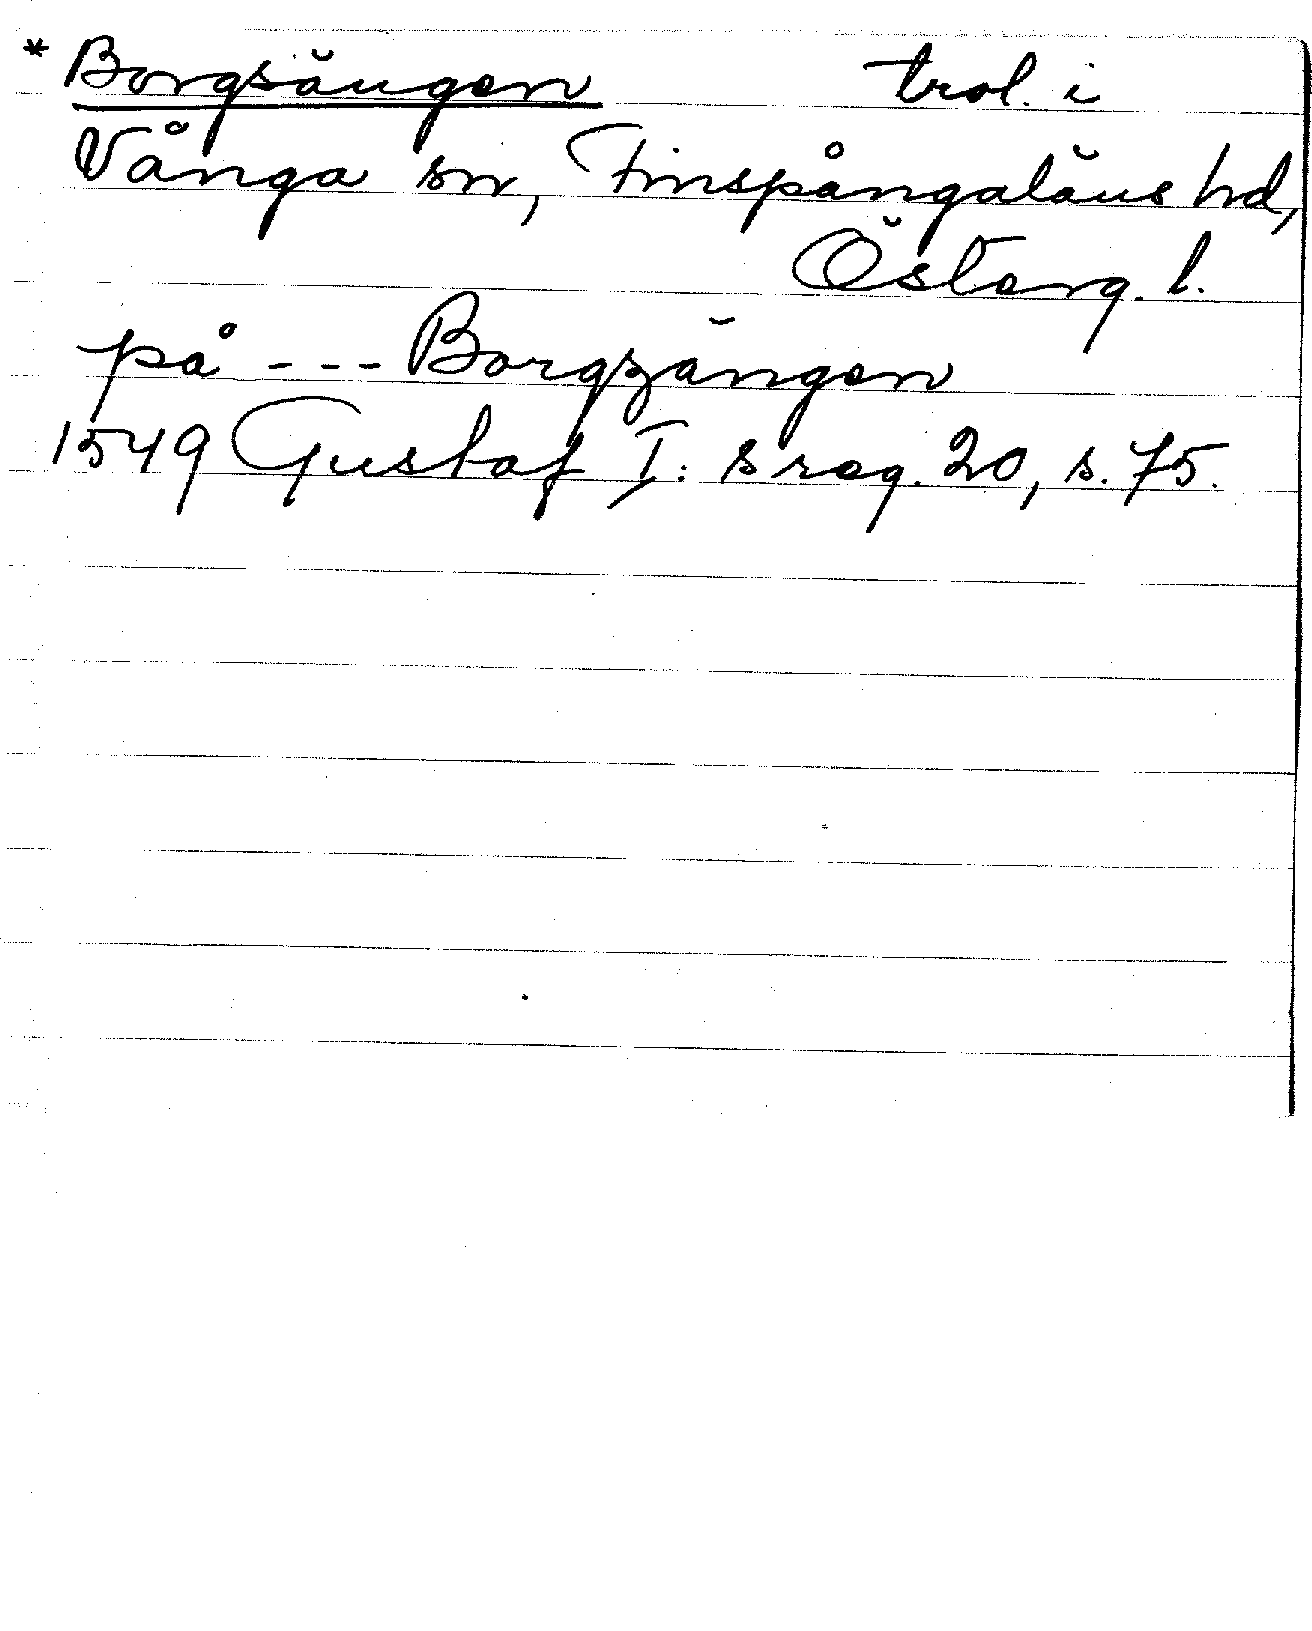 * Borgsängen trol. i
Vånga sn, Finspångaläns hd,
Österg. l.
på --- Borgzängen
1549 Gustaf I:s reg. 20, s. 75.